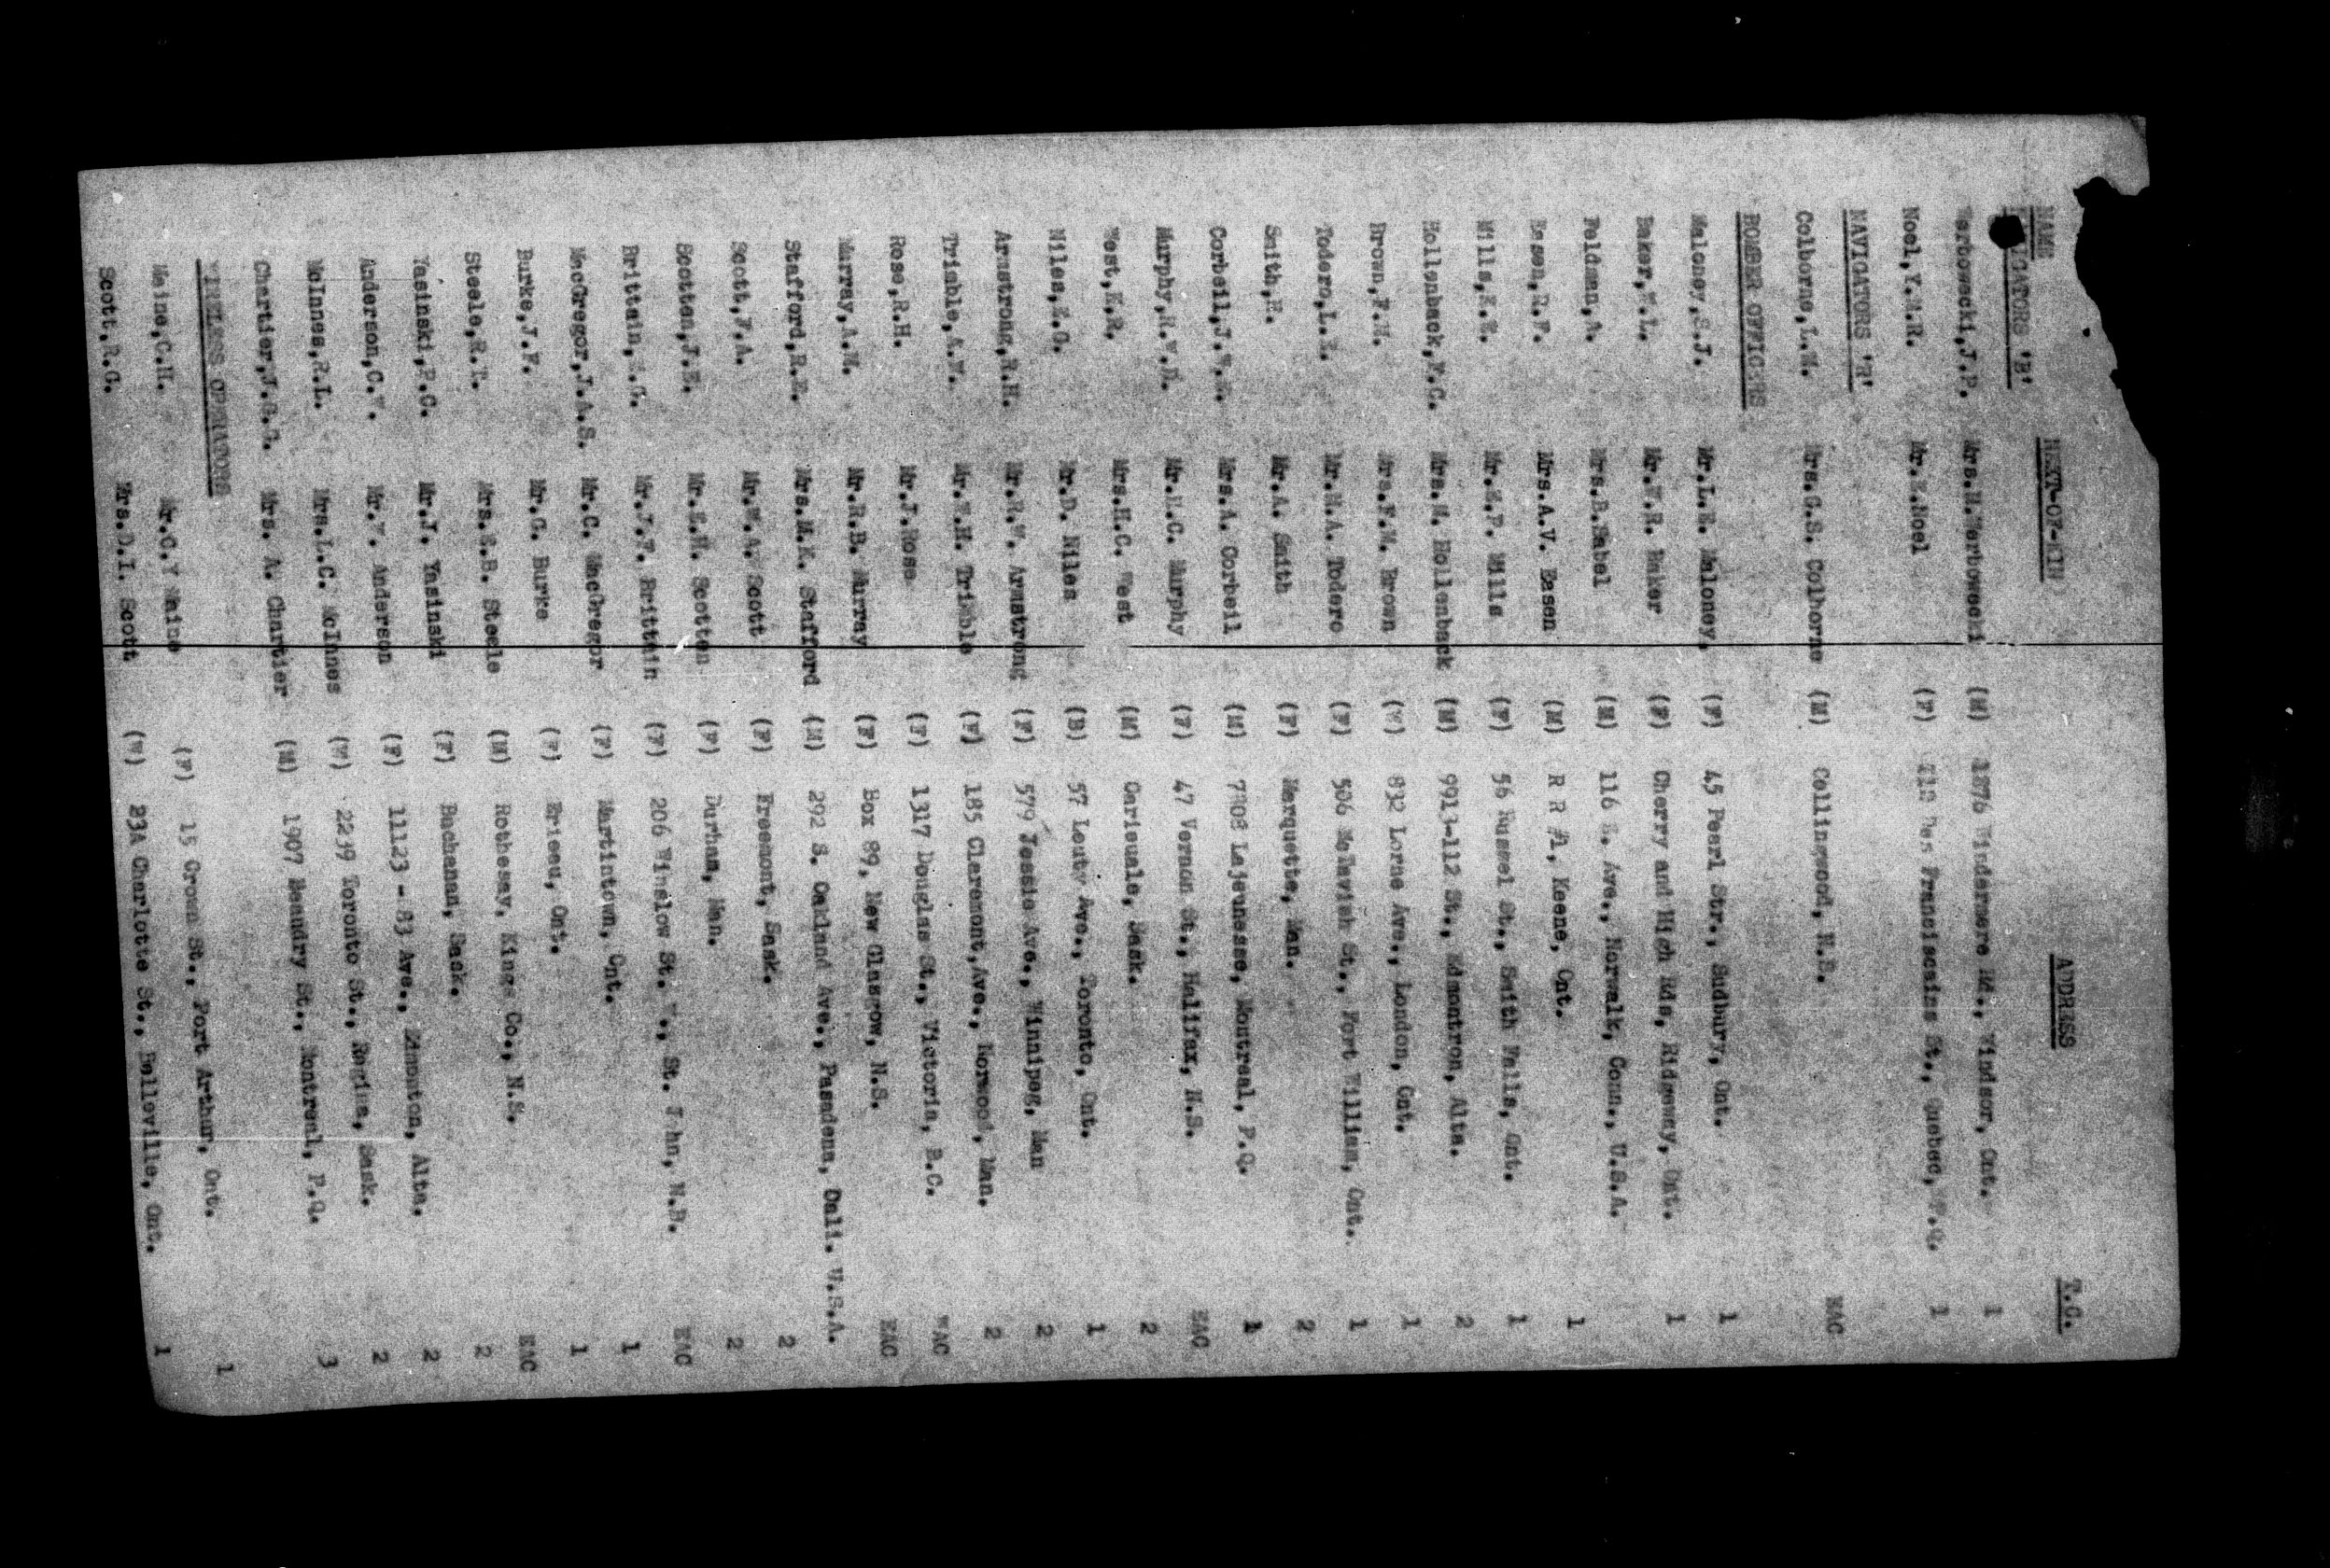 NAME NEXT-OF-KIN ADDRESS T.C.
NAVIGATORS 'B'
Werbowecki,J.P. Mrs.M.Werbowecki (M) 1876 Windermere Rd., Windsor, Ont. 1
Noel,Y.M.R. Mr. Noel (F) Des Franciscains St., Quebec, P.Q. 1
NAVIGATORS 'R'
Colborne,L.M. Mrs.G.S. Colborne (M) Collingwood, 
EAC
BOMBER OFFICERS
Maloney,S.J. Mr.L.E. Maloney. (F) 45 Pearl Str., Sudbury, Ont. 1
Baker,W.L. Mr.W.R. Baker (F) Cherry and High Rds, Ridgeway, Ont. 1
Feldman,A. Mrs.B.Sabel (M) 116 Ave., Norwalk, Conn., U.S.A.
Easen,R.F. Mrs.A.V. Easen (M) R R #1, Keene, Ont. 1
Mills,K.E. Mr.E.P. Mills (F) 56 Russel St., Smith Falls, Ont. 1
Hollenback,F.C. Mrs.M. Hollenback (M) 9913-112 St., Edmontron, Alta. 2
Brown,F.H. Mrs.F.M. Brown (W) 832 Lorne Ave., London, Ont. 1
Todero,L.E. Mr.M.A. Todero (F) 506 McTavish St., Fort William, Ont. 1
Smith,E. Mr.A. Smith (F) Marquette, Man. 2
Corbeil,J.W.E. Mrs.A. Corbeil (M) 7808 Lajeunesse, Montreal, P.Q. 1
Murphy,R.W.D. Mr.H.C. Murphy (F) 47 Vernon St., Halifax, N.S. EAC
West,K.R. Mrs.H.C. West (M) Carievale, Sask. 2
Niles,E.G. Mr.D. Niles (B) 57 Leuty Ave., Toronto, Ont. 1
Armstrong,R.H. Mr.R.W. Armstrong (F) 579 Jessie Ave., Winnipeg, Man 2
Trimble,A.W. Mr.W.H. Trimble (F) 185 Claremont,Ave., Norwood, Man. 2
Rose,R.H. Mr.J.Rose (F) 1317 Douglas St., Victoria, B.C. WAC
Murray,A.M. Mr.R.B. Murray (F) Box 89, New Glasgow, N.S. EAC
Stafford,R.E. Mrs.M.K. Stafford (M) 292 S. Oakland Ave., Pasadena, Cali. U.S.A.
Scott,F.A. Mr.W.A. Scott (F) Freemont, Sask. 2
Scotten,J.E. Mr.E.M. Scotten (F) Durham, Man. 2
Brittain,E.G. Mr.J.W. Brittain (F) 206 Winslow St. W., St. John, N.B. EAC
MacGregor,J.A.S. Mr.C. MacGregor (F) Martintown, Ont. 1
Burke,J.F. Mr.G. Burke (F) Erieau, Ont. 1
Steele,R.T. Mrs.E.B. Steele (M) Rothesay, Kings Co., N.S. EAC
Yasinski,P.C. Mr.J. Yasinski (F) Buchanan, Sask. 2
Anderson,C.W. Mr.W. Anderson (F) 11123 - 83 Ave., Edmonton, Alta. 2
McInnes,R.L. Mrs.L.C. McInnes (W) 2239 Toronto St., Regina, Sask. 2
Chartier,J.G.G. Mrs. A. Chartier (M) 1907 Beaudry St., Montreal, P.Q. 3
WIRELESS OPERATORS
Maine,C.H. Mr.C.Y Maine (F) 15 Crown St., Port Arthur, Ont. 1
Scott,R.G. Mrs.D.I. Scott (W) 23A Charlotte St., Belleville, Ont. 1